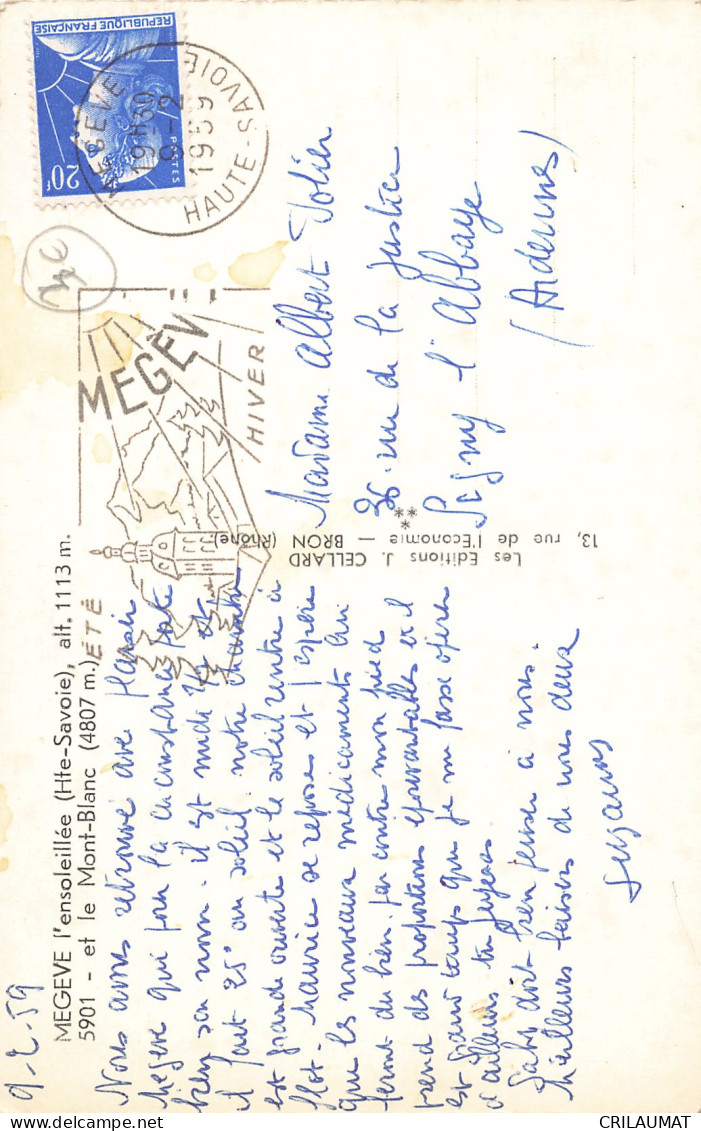 9-2-59
MEGEVE l'ensoleillée (Hte-Savoie), alt. 1113 m.
5901 - et le Mont-Blanc (4807 m.)
Nous avons retrouvé avec plaisir
Megève qui pour la circonstance porte
bien son nom. il est midi ¼ et
il fait 25° au soleil. notre chambre
est grande ouverte et le soleil rentre à
flot. Maurice se repose et j'espère
que les nouveaux médicaments lui
feront du bien. par contre mon pied
prend des proportions épouvantables et il
est grand temps que je me fasse opérer
d'ailleurs tu jugeras
Gaby doit bien penser à nous.
Meilleurs baisers de nous deux
Suzanne
Les Editions J. CELLARD
13, rue de l'Economie — BRON (Rhône)
REPUBLIQUE FRANÇAISE
POSTES
20F
MEGEVE
19H30
9-2
1959
HAUTE-SAVOIE
MEGÈV
ÉTÉ
HIVER
Madame Albert
36. rue de la Justice
Signy l'Abbaye
(Ardennes)
CRILAUMAT